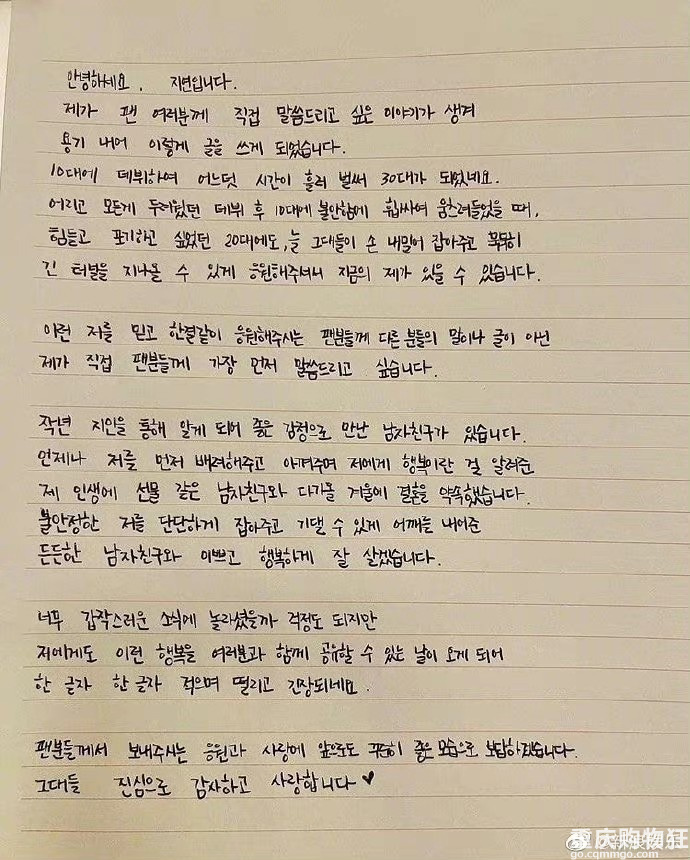 안녕하세요. 지연입니다.
제가 팬 여러분께 직접 말씀드리고 싶은 이야기가 생겨
용기 내어 이렇게 글을 쓰게 되었습니다.
10대에 데뷔하여 어느덧 시간이 흘러 벌써 30대가 되었네요.
어리고 모든게 두려웠던 데뷔 후 10대에 불안함에 휩싸여 움츠려들었을 때,
힘들고 포기하고 싶었던 20대에도, 늘 그대들이 손 내밀어 잡아주고 묵묵히
긴 터널을 지나올 수 있게 응원해주셔서 지금의 제가 있을 수 있습니다.
이런 저를 믿고 한결같이 응원해주시는 팬분들께 다른 분들의 말이나 글이 아닌
제가 직접 팬분들께 가장 먼저 말씀드리고 싶습니다.
작년 지인을 통해 알게 되어 좋은 감정으로 만난 남자친구가 있습니다.
언제나 저를 먼저 배려해주고 아껴주며 저에게 행복이란 걸 알려준
제 인생에 선물 같은 남자친구와 다가올 겨울에 결혼을 약속했습니다.
불안정한 저를 단단하게 잡아주고 기댈 수 있게 어깨를 내어준
든든한 남자친구와 이쁘고 행복하게 잘 살겠습니다.
너무 갑작스러운 소식에 놀라셨을까 걱정도 되지만
저에게도 이런 행복을 여러분과 함께 공유할 수 있는 날이 오게 되어
한 글자 한 글자 적으며 떨리고 긴장되네요.
팬분들께서 보내주시는 응원과 사랑에 앞으로도 꾸준히 좋은 모습으로 보답하겠습니다.
그대들 진심으로 감사하고 사랑합니다 ♥
重庆购物狂
go.cqmmgo.com